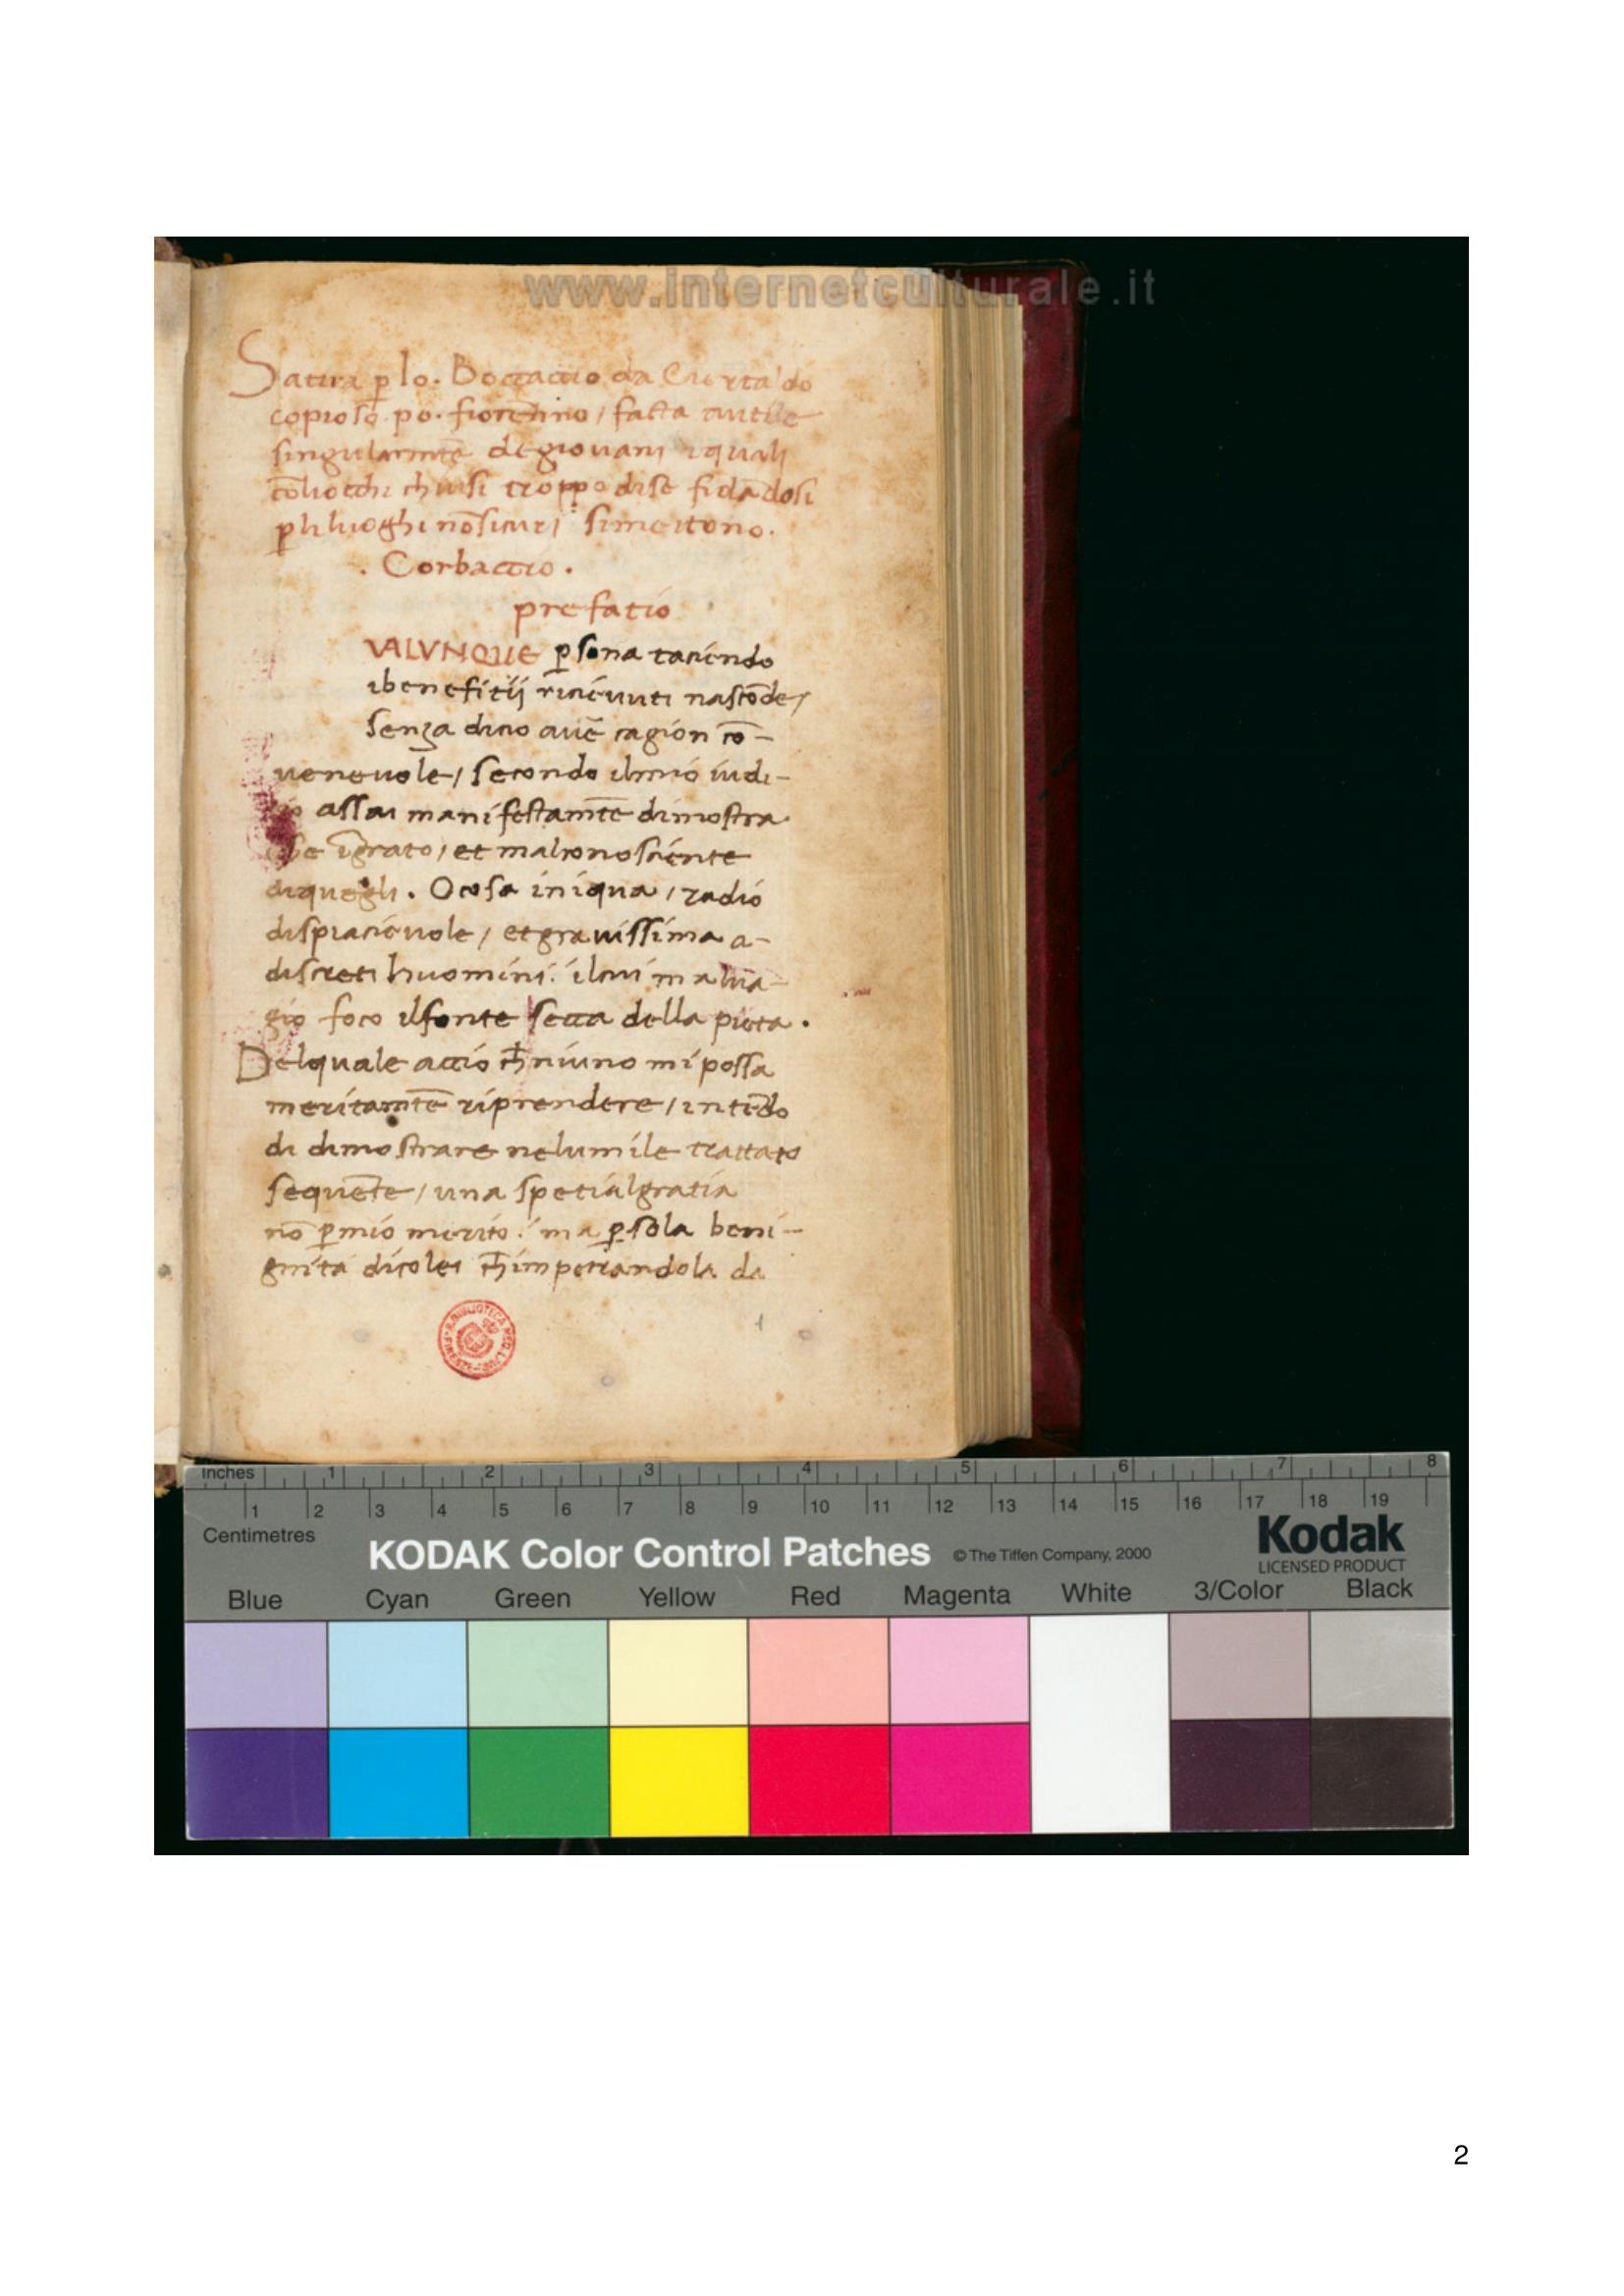 www.internetculturale.it
Satira p̱ lo. Boccaccio da Certaldo
copioso po. fiorentino / facta
singularmẽte degiouani iquali
cõliocchi chiusi troppo dise fidãdosi
p̱li luoghi nõ sicuri simettono.
. Corbaccio .
prefatio
VALVNQUE p̱sona tacendo
ibenefitij riceuuti nascõde /
senza dico auẽ cagion cõ-
ueneuole / secondo ilmio iudi-
io assai manifestamẽte dimostra
se ĩgrato / et malconoscente
diquegli . O cosa iniqua / 7 adio
dispiaceuole / et grauissima a-
discreti huomini. ilcui malua-
gio foco ilfonte secca della pieta .
Delquale accio ch̄ niuno mi possa
meritamẽte riprendere / intẽdo
di dimostrare nelumile trattato
sequẽte / una spetial gratia
nõ p̱ mio merito. ma p̱ sola beni-
gnita dicolei ch̄ impetrandola da
1
Inches 1 2 3 4 5 6 7 8
1 2 3 4 5 6 7 8 9 10 11 12 13 14 15 16 17 18 19
Centimetres
KODAK Color Control Patches © The Tiffen Company, 2000
Kodak
LICENSED PRODUCT
Blue Cyan Green Yellow Red Magenta White 3/Color Black
2